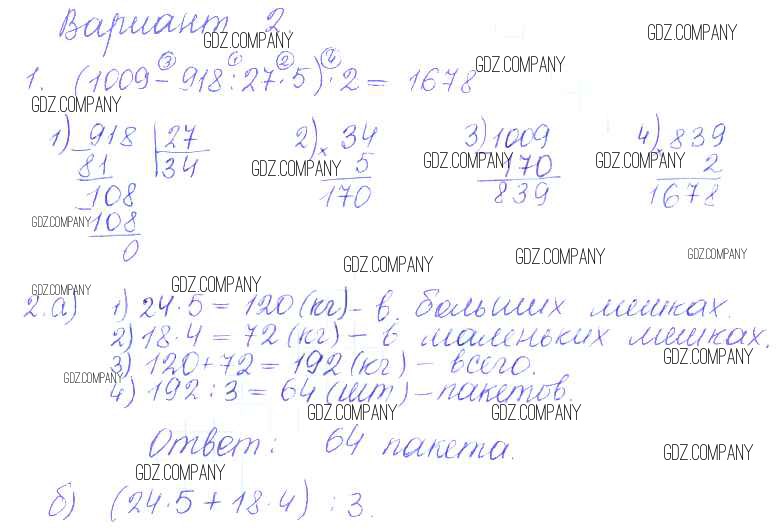 Вариант 2
GDZ.COMPANY GDZ.COMPANY
③ ① ② ④
1. (1009 - 918 : 27 · 5) · 2 = 1678
GDZ.COMPANY
GDZ.COMPANY
1) 918 | 27 2) 34 3) 1009 4) 839
81 34 × 5 170 2
GDZ.COMPANY GDZ.COMPANY GDZ.COMPANY
108 170 839 1678
108
GDZ.COMPANY
0
GDZ.COMPANY GDZ.COMPANY GDZ.COMPANY
GDZ.COMPANY GDZ.COMPANY
2. а) 1) 24 · 5 = 120 (кг) - в больших мешках.
2) 18 · 4 = 72 (кг) - в маленьких мешках.
GDZ.COMPANY
3) 120 + 72 = 192 (кг) - всего.
GDZ.COMPANY
4) 192 : 3 = 64 (шт) - пакетов.
GDZ.COMPANY GDZ.COMPANY
Ответ: 64 пакета.
GDZ.COMPANY
GDZ.COMPANY
б) (24 · 5 + 18 · 4) : 3.